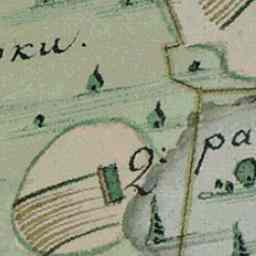 рки.
2: ра